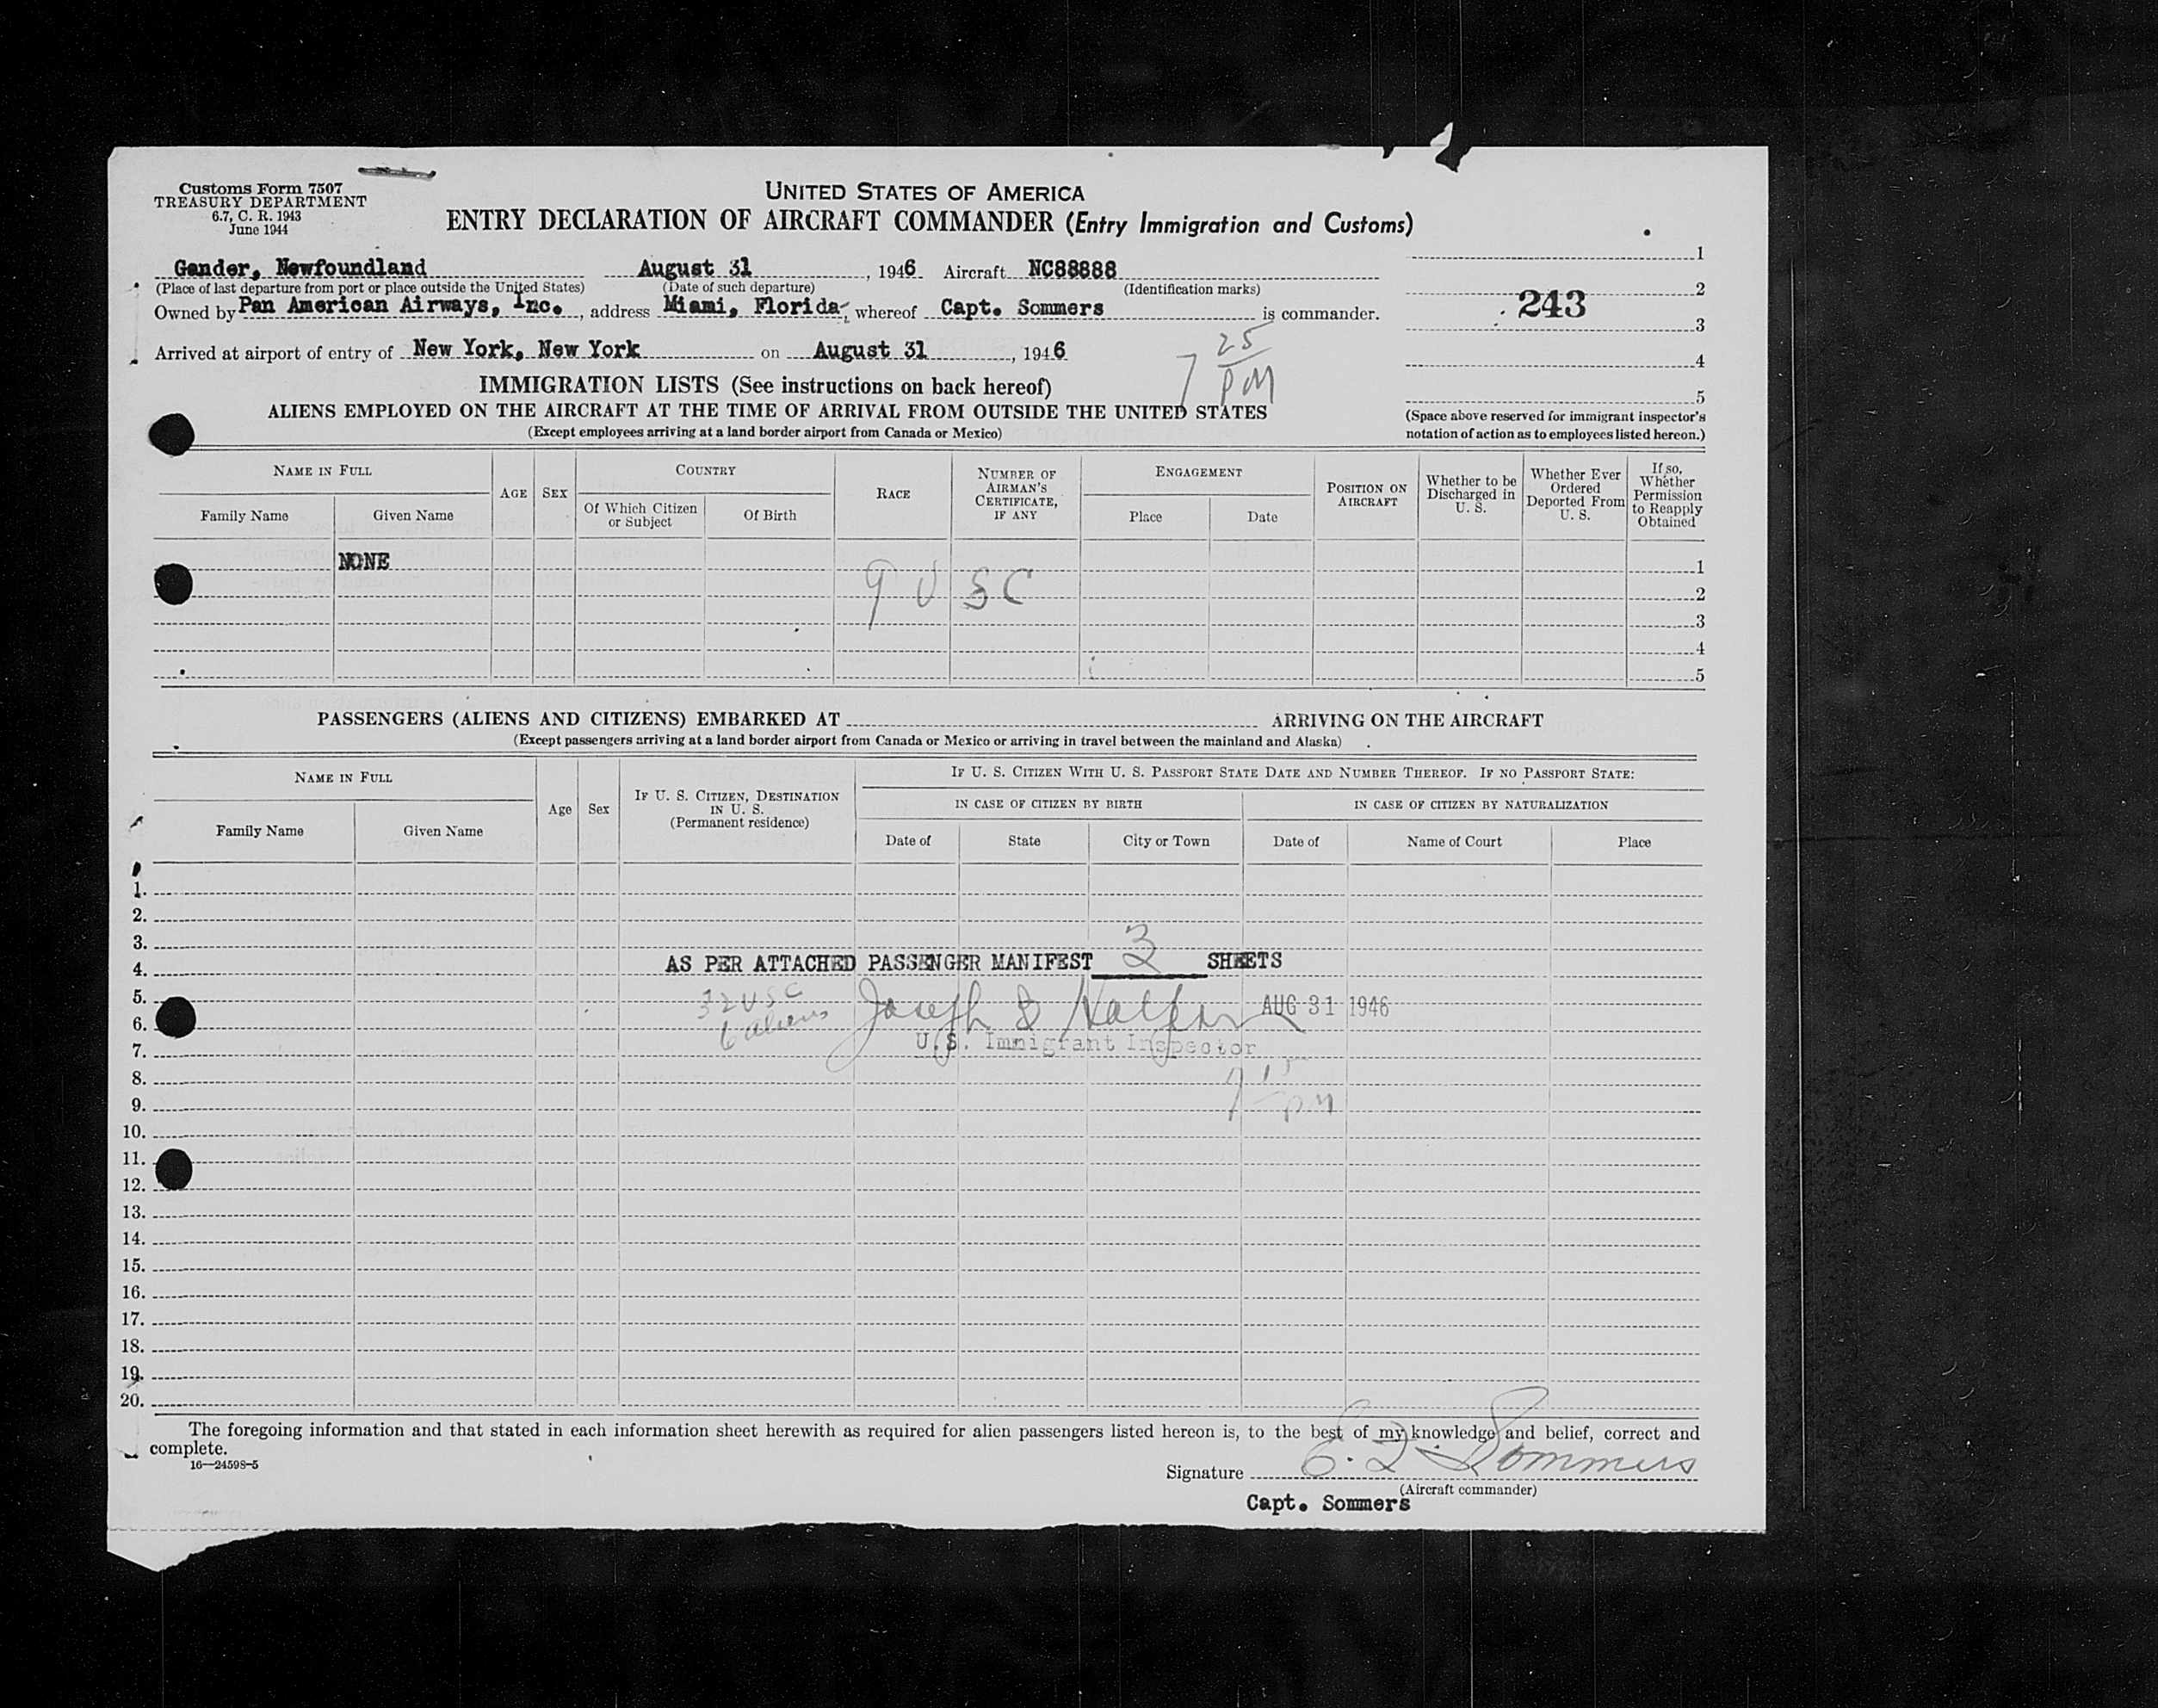 Customs Form 7507
TREASURY DEPARTMENT
6.7, C. R. 1943
June 1944
UNITED STATES OF AMERICA
ENTRY DECLARATION OF AIRCRAFT COMMANDER (Entry Immigration and Customs)
Gander, Newfoundland August 31, 1946 Aircraft NC88888
(Place of last departure from port or place outside the United States) (Date of such departure) (Identification marks)
Owned by Pan American Airways, Inc., address Miami, Florida, whereof Capt. Sommers is commander.
Arrived at airport of entry of New York, New York on August 31, 1946
7 25 PM
1
2
243
3
4
5
(Space above reserved for immigrant inspector's
notation of action as to employees listed hereon.)
IMMIGRATION LISTS (See instructions on back hereof)
ALIENS EMPLOYED ON THE AIRCRAFT AT THE TIME OF ARRIVAL FROM OUTSIDE THE UNITED STATES
(Except employees arriving at a land border airport from Canada or Mexico)
NAME IN FULL
Family Name
Given Name
AGE
SEX
COUNTRY
Of Which Citizen
or Subject
Of Birth
RACE
NUMBER OF
AIRMAN'S
CERTIFICATE,
IF ANY
ENGAGEMENT
Place
Date
POSITION ON
AIRCRAFT
Whether to be
Discharged in
U. S.
Whether Ever
Ordered
Deported From
U. S.
If so,
Whether
Permission
to Reapply
Obtained
NONE 1
9 USC 2
3
4
5
PASSENGERS (ALIENS AND CITIZENS) EMBARKED AT ARRIVING ON THE AIRCRAFT
(Except passengers arriving at a land border airport from Canada or Mexico or arriving in travel between the mainland and Alaska)
NAME IN FULL
Family Name
Given Name
Age
Sex
IF U. S. CITIZEN, DESTINATION
IN U. S.
(Permanent residence)
IF U. S. CITIZEN WITH U. S. PASSPORT STATE DATE AND NUMBER THEREOF. IF NO PASSPORT STATE:
IN CASE OF CITIZEN BY BIRTH
IN CASE OF CITIZEN BY NATURALIZATION
Date of
State
City or Town
Date of
Name of Court
Place
1.
2.
3.
4. AS PER ATTACHED PASSENGER MANIFEST 3 SHEETS
5. 32 USC Joseph AUG 31 1946
6. 6 aliens
7. U.S. Immigrant Inspector
8. 7 15
9. PM
10.
11.
12.
13.
14.
15.
16.
17.
18.
19.
20.
The foregoing information and that stated in each information sheet herewith as required for alien passengers listed hereon is, to the best of my knowledge and belief, correct and
complete.
16—24598-5
Signature Sommers
(Aircraft commander)
Capt. Sommers